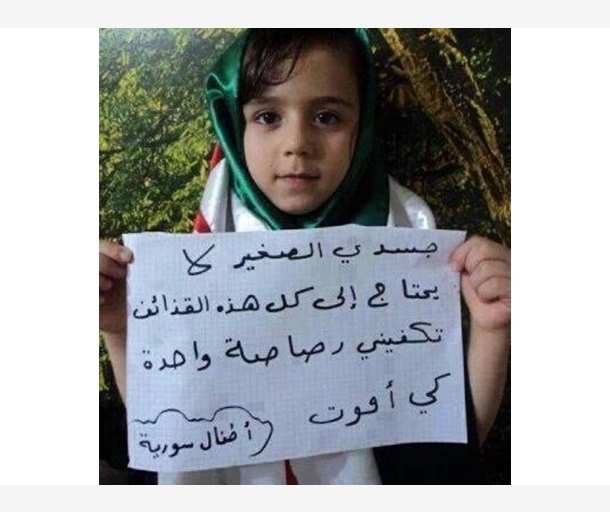 جسدي الصغير لا
يحتاج إلى كل هذه القذائف
تكفيني رصاصة واحدة
كي أموت
أطفال سورية